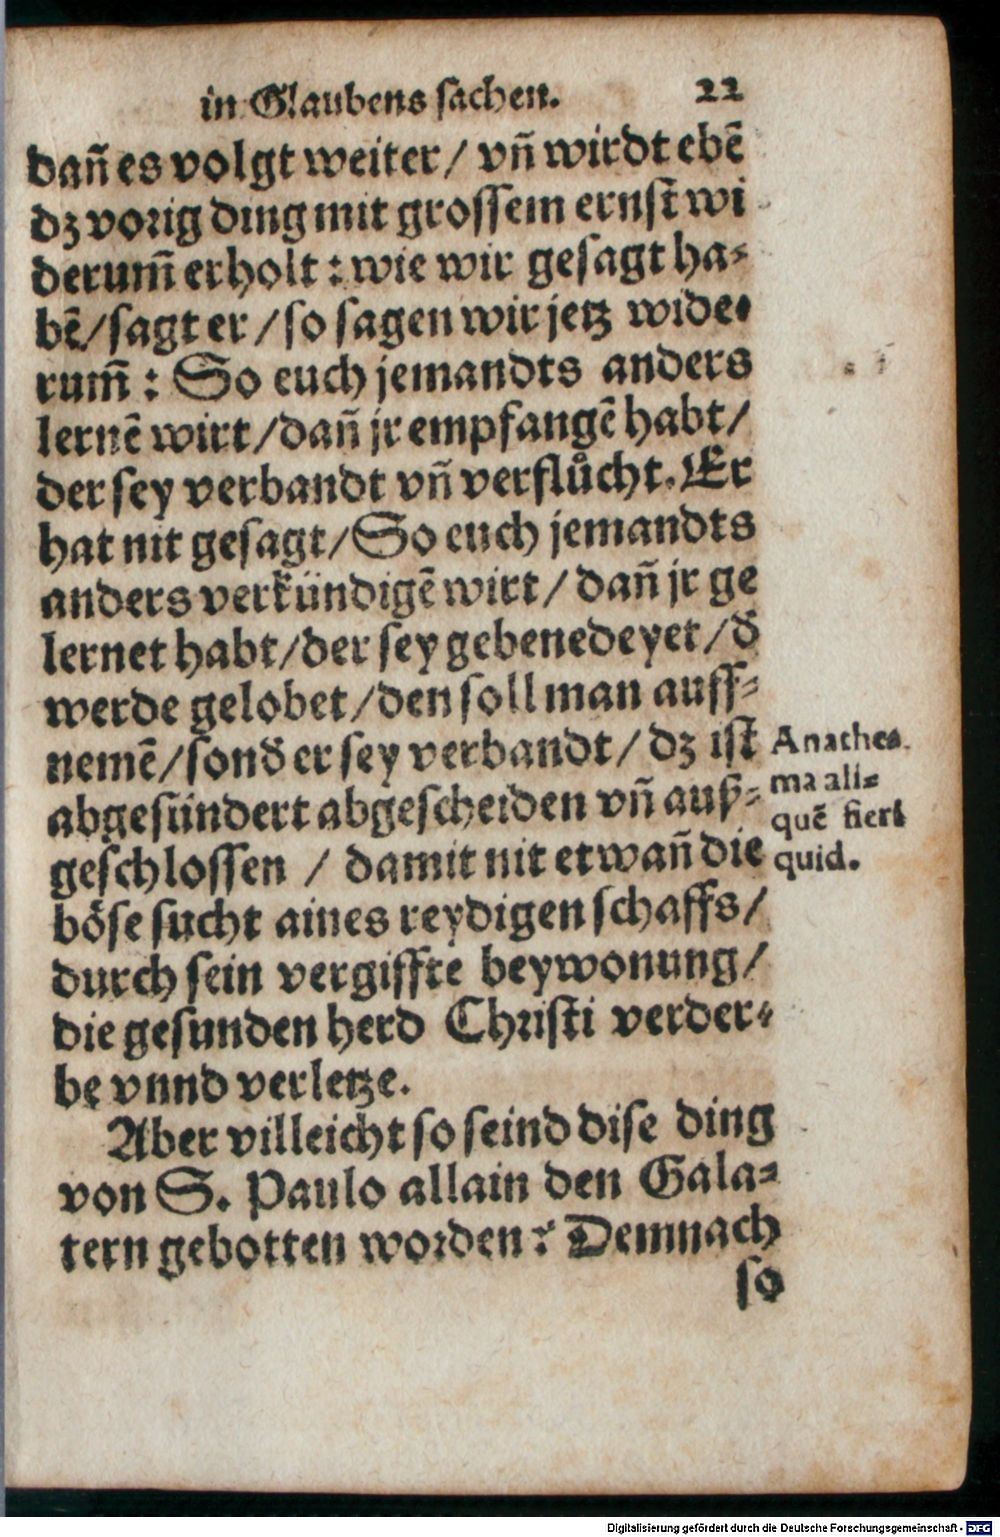 in Glaubens sachen. 22
dañ es volgt weiter / vñ wirdt ebē
dz vorig ding mit grossem ernst wi
derum̃ erholt : wie wir gesagt ha-
bē / sagt er / so sagen wir jetz wide-
rum̃ : So euch jemandts anders
lernē wirt / dañ jr empfangē habt /
der sey verbandt vñ verflůcht. Er
hat nit gesagt / So euch jemandts
anders verkündigē wirt / dañ jr ge
lernet habt / der sey gebenedeyet / d̄
werde gelobet / den soll man auff-
nemē / sond̄ er sey verbandt / dz ist
abgesündert abgescheiden vñ auß-
geschlossen / damit nit etwañ die
böse sucht aines reydigen schaffs /
durch sein vergiffte beywonung /
die gesunden herd Christi verder-
be vnnd verletze.
Anathe-
ma ali-
quē fieri
quid.
Aber villeicht so seind dise ding
von S. Paulo allain den Gala-
tern gebotten worden? Demnach
so
Digitalisierung gefördert durch die Deutsche Forschungsgemeinschaft - DFG